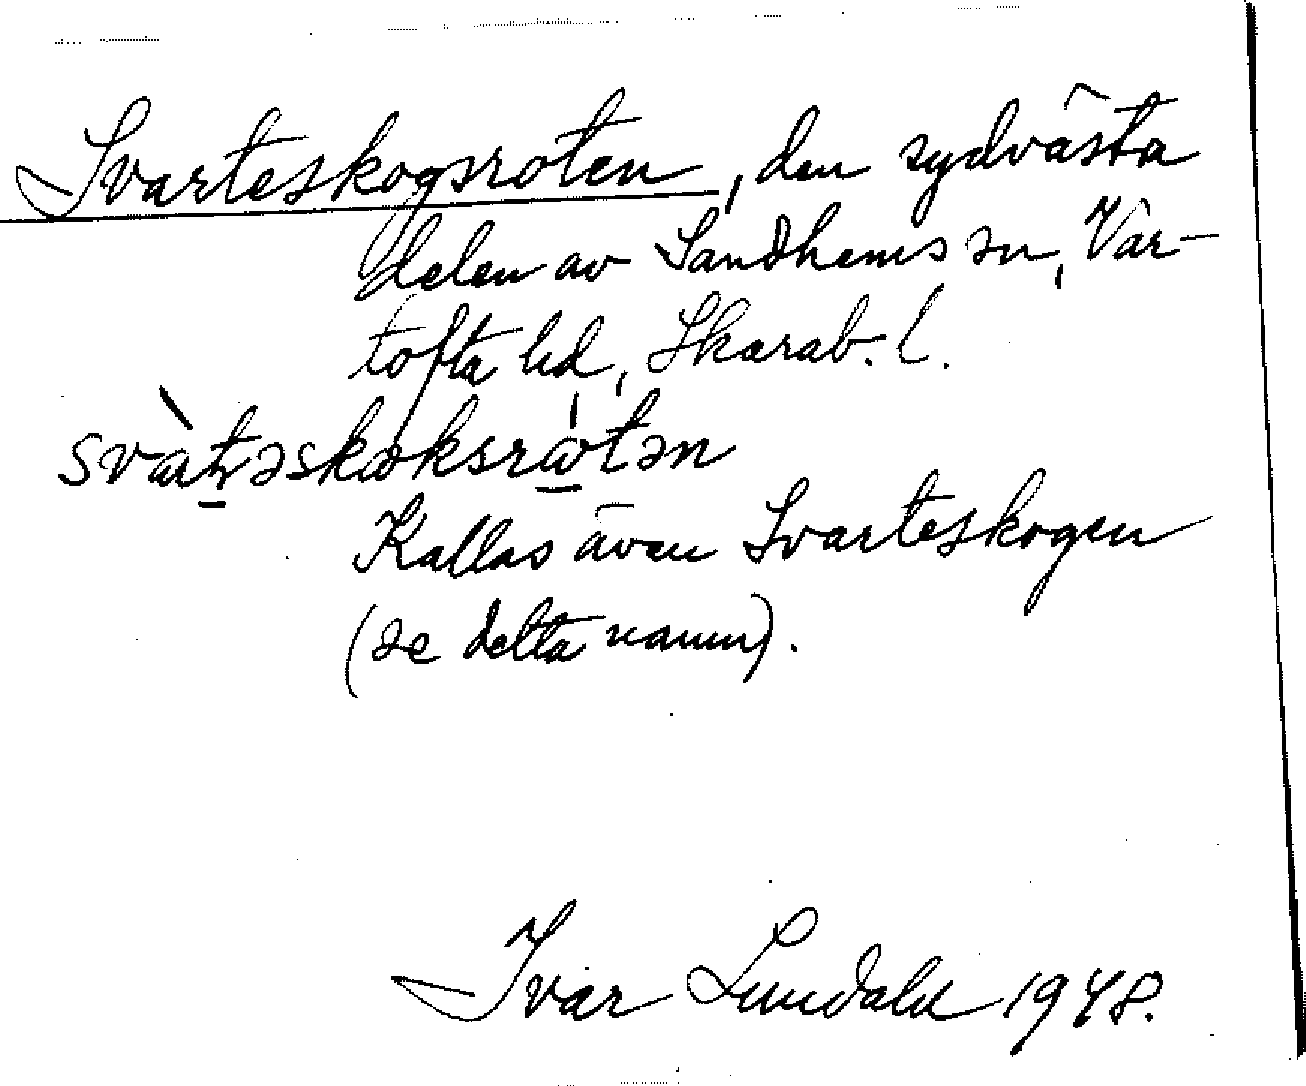 Svarteskogsroten, den sydvästa
delen av Sandhems sn, Var-
tofta hd, Skarab. l.
svàṭəskɷksrɷ́tən
Kallas även Svarteskogen
(se detta namn).
Ivar Lundahl 1948.